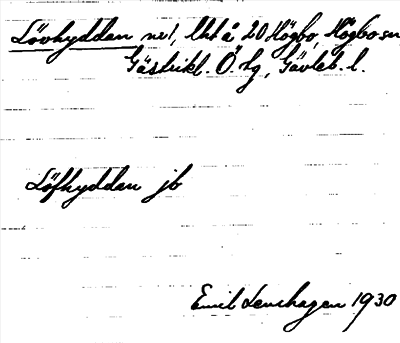 Lövhyddan nr 1, lht å 20 Högbo, Högbo sn
Gästrikl. Ö. tg, Gävleb. l.
Löfhyddan jb
Emil Lenehagen 1930